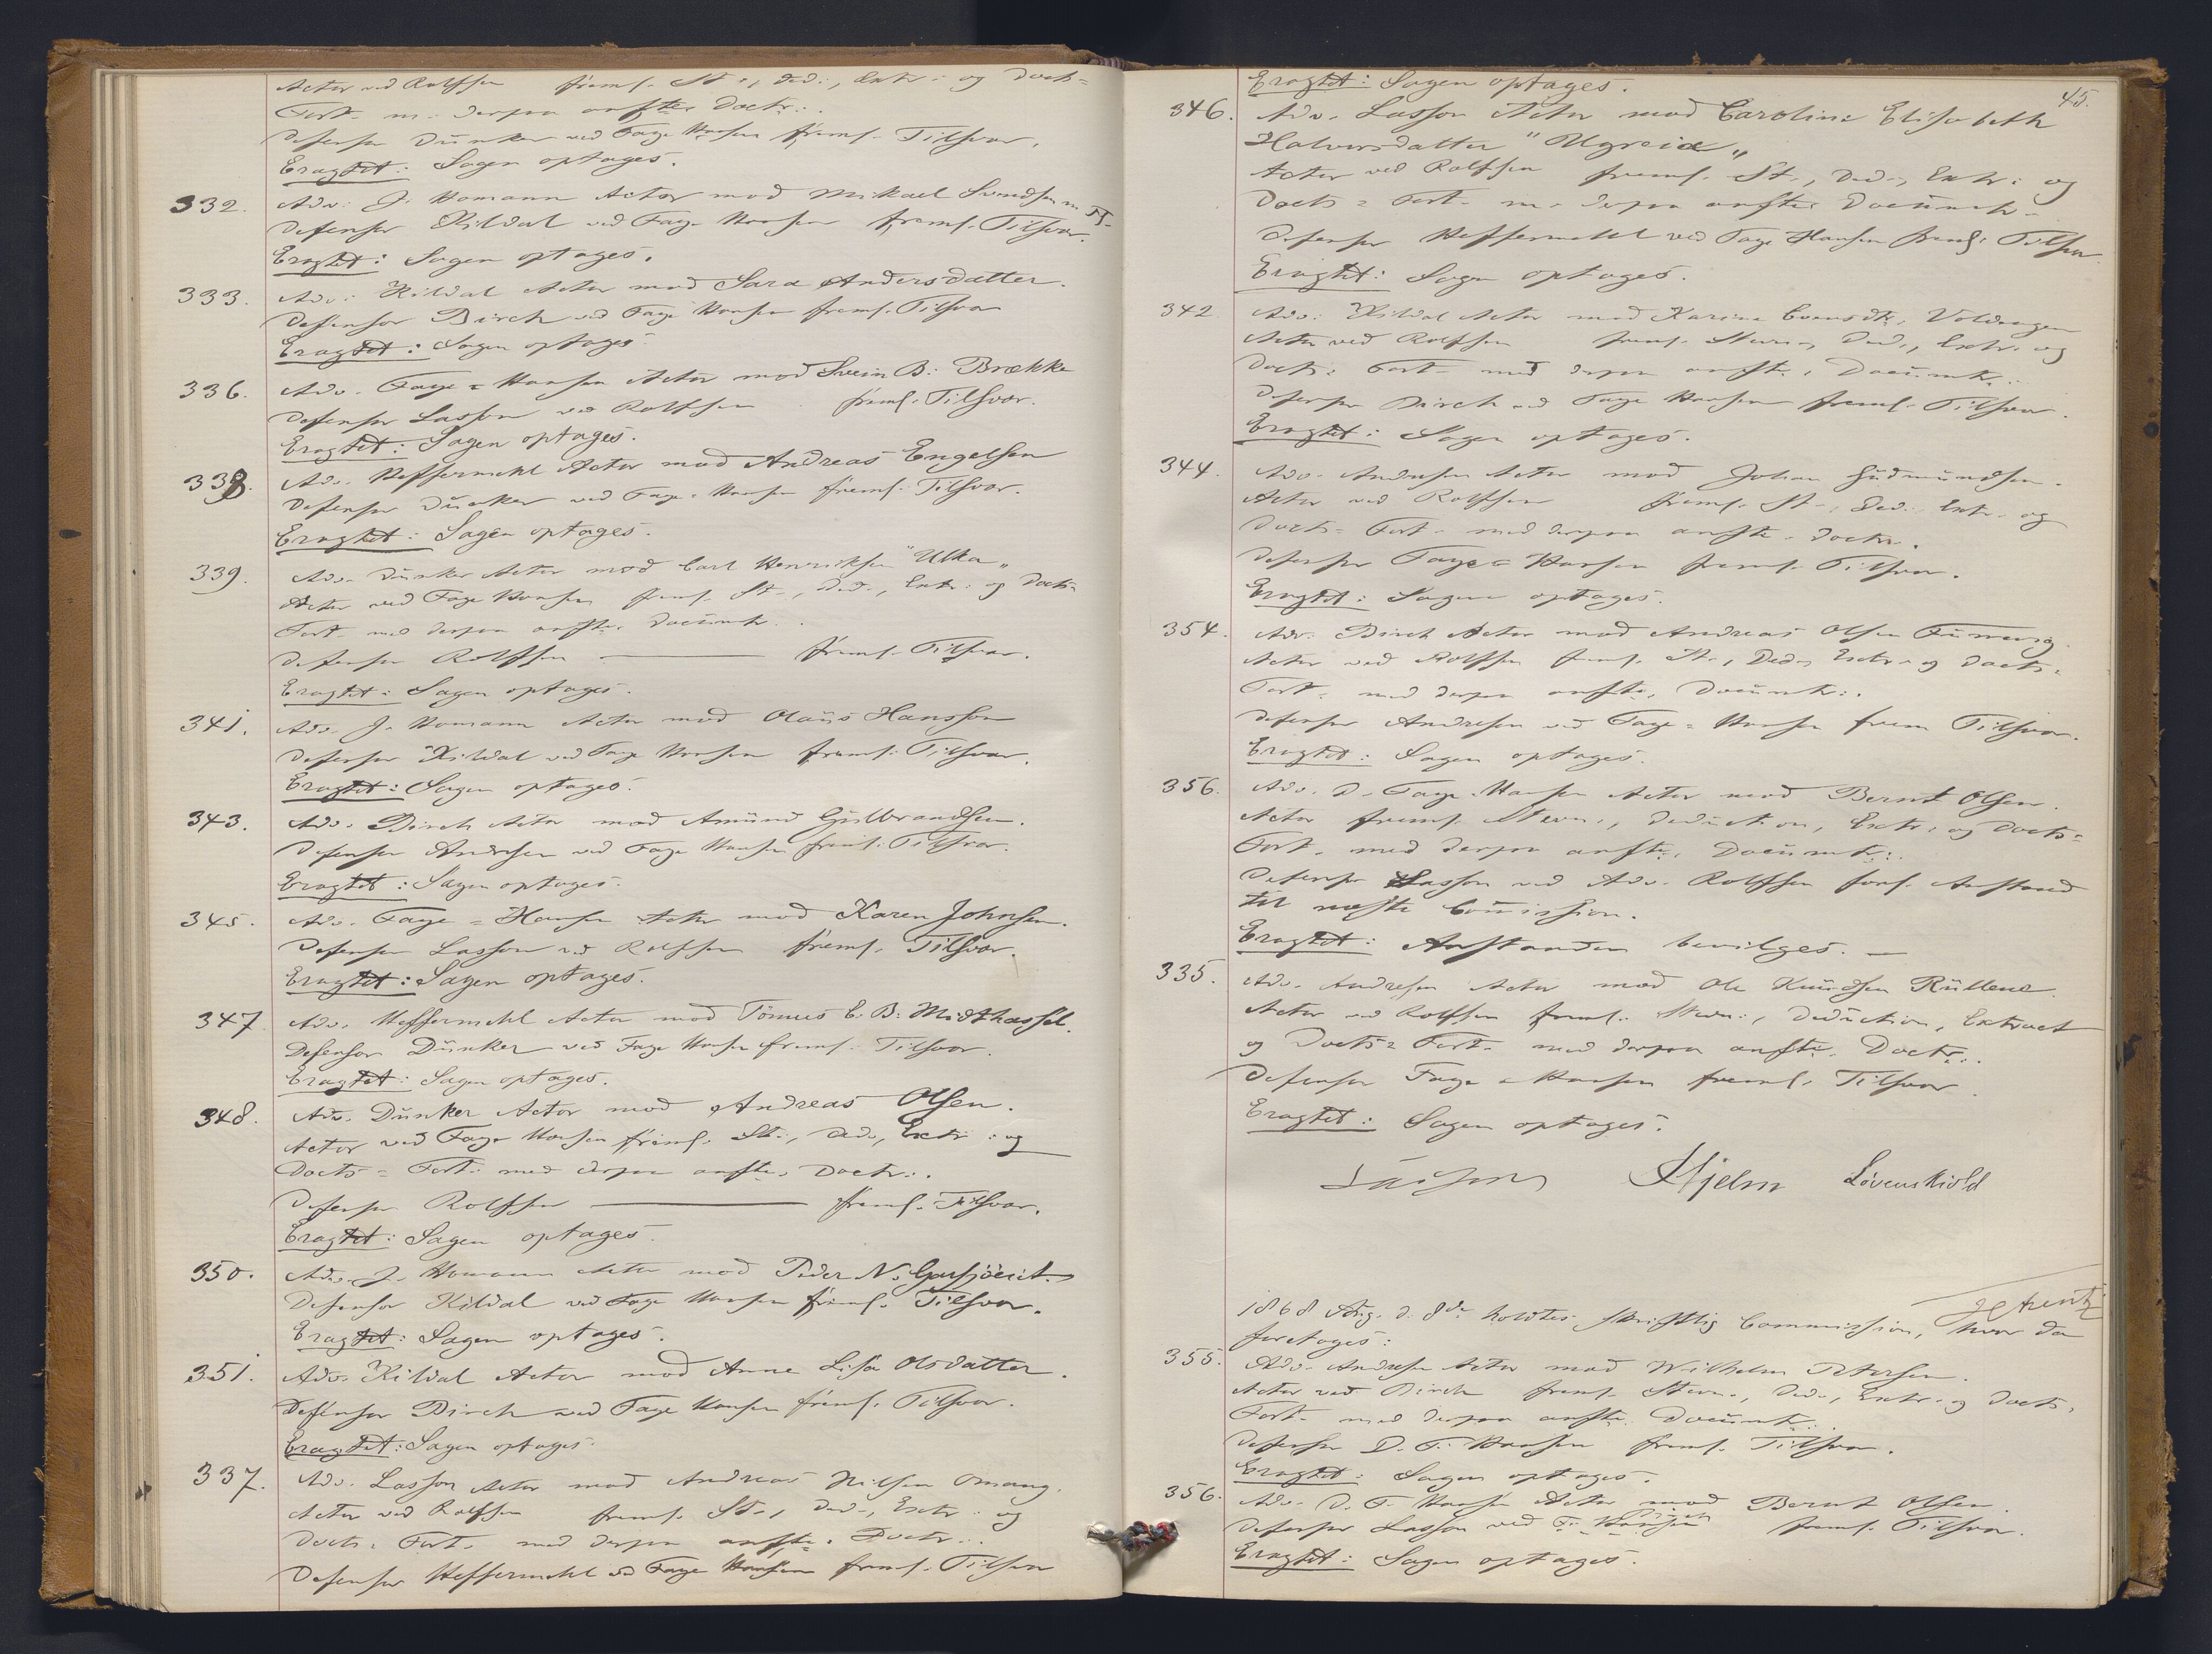 Actor ved Rolfsen freml. St., Ded., Extr: og Docts=
Fort. m. derpaa anførte Doctr:.
Defensor Dünker ved Faye Hansen freml. Tilsvar.
Eragtet: Sagen optages.
332. Adv: J. Homann Actor mod Mikael Svendsen m. fl.
Defensor Kildal ved Faye Hansen freml. Tilsvar.
Eragtet: Sagen optages.
333. Adv: Kildal Actor mod Sara Andersdatter.
Defensor Birch ved Faye Hansen freml. Tilsvar
Eragtet: Sagen optages.
336. Adv. Faye=Hansen Actor mod Svein B: Brække
Defensor Lasson ved Rolfsen freml. Tilsvar.
Eragtet: Sagen optages.
338. Adv. Heffermehl Actor mod Andreas Engelsen
Defensor Dünker ved Faye=Hansen freml. Tilsvar.
Eragtet: Sagen optages.
339. Adv. Dünker Actor mod Carl Henriksen "Ulka"
Actor ved Faye Hansen freml. St., Ded., Extr: og Docts=
Fort. med derpaa anførte Documtr.
Defensor Rolfsen — freml. Tilsvar.
Eragtet: Sagen optages.
341. Adv. J. Homann Actor mod Olaüs Hansson
Defensor Kildal ved Faye Hansen freml. Tilsvar.
Eragtet: Sagen optages.
343. Adv. Birch Actor mod Amünd Gülbrandsen.
Defensor Andresen ved Faye Hansen freml. Tilsvar.
Eragtet: Sagen optages.
345. Adv. Faye=Hansen Actor mod Karen Johnsen.
Defensor Lasson ved Rolfsen freml. Tilsvar.
Eragtet: Sagen optages.
347. Adv. Heffermehl Actor mod Tönnes E. B: Midthassel.
Defensor Dünker ved Faye Hansen freml. Tilsvar.
Eragtet: Sagen optages.
348. Adv. Dünker Actor mod Andreas Olsen.
Actor ved Faye Hansen freml. St., Ded., Extr: og
Docts= Fort. med derpaa anførte Doctr:.
Defensor Rolfsen — freml. Tilsvar.
Eragtet: Sagen optages.
350. Adv. J. Homann Actor mod Peder N.
Defensor Kildal ved Faye Hansen freml. Tilsvar.
Eragtet: Sagen optages.
351. Adv. Kildal Actor mod Anne Lisa Olsdatter.
Defensor Birch ved Faye Hansen freml. Tilsvar.
Eragtet: Sagen optages.
337. Adv. Lasson Actor mod Andreas Nilsen Omang.
Actor ved Rolfsen freml. St., Ded., Extr: og
Docts= Fort. med derpaa anførte Doctr:.
Defensor Heffermehl ved Faye Hansen freml. Tilsvar
45.
Eragtet: Sagen optages.
346. Adv. Lasson Actor mod Caroline Elisabeth
Halvorsdatter "Ugreia"
Actor ved Rolfsen freml. St., Ded., Extr: og
Docts= Fort. m. derpaa anførte Documtr.
Defensor Heffermehl ved Faye Hansen freml. Tilsvar.
Eragtet: Sagen optages.
342. Adv: Kildal Actor mod Karine Evensdtr.
Actor ved Rolfsen freml. Stevn., Ded., Extr. og
Docts= Fort. med derpaa anførte Documtr:.
Defensor Birch ved Faye Hansen freml. Tilsvar.
Eragtet: Sagen optages.
344. Adv. Andresen Actor mod Johan Güdmündsen.
Actor ved Rolfsen freml. St., Ded., Extr. og
Docts= Fort. med derpaa anførte Doctr:.
Defensor Faye=Hansen freml. Tilsvar.
Eragtet: Sagen optages.
354. Adv. Birch Actor mod Andreas Olsen
Actor ved Rolfsen freml. St., Ded., Extr. og Docts=
Fort. med derpaa anførte Documtr:.
Defensor Andresen ved Faye=Hansen frem Tilsvar.
Eragtet: Sagen optages.
356. Adv. D. Faye Hansen Actor mod Bernt Olsen.
Actor freml. Stevn., Deduction, Extr: og Docts=
Fort. med derpaa anførte Documtr:.
Defensor Lasson ved Adv. Rolfsen forl. Anstand
til næste Commission.
Eragtet: Anstanden bevilges. —
335. Adv. Andresen Actor mod Ole Knüdsen Rüllene.
Actor ved Rolfsen freml. Stevn., Deduction, Extract
og Docts= Fort. med derpaa anførte Doctr:.
Defensor Faye=Hansen freml. Tilsvar.
Eragtet: Sagen optages.
Lasson Hjelm Løvenskiold
1868 Aug. d. 8de holdtes skriftlig Commission, hvor da
foretoges:
355. Adv. Andresen Actor mod Wilhelm Petersen.
Actor ved Birch freml. Stevn., Ded., Extr. og Docts=
Fort. med derpaa anførte Documtr:.
Defensor D. F. Hansen freml. Tilsvar.
Eragtet: Sagen optages.
356. Adv. D. F. Hansen Actor mod Bernt Olsen.
Defensor Lasson ved F. Hansen Birch freml. Tilsvar.
Eragtet: Sagen optages.